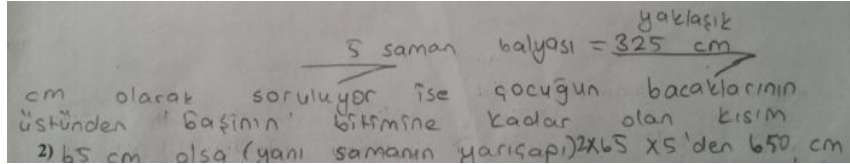 yaklaşık
5 saman balyası = 325 cm
cm olarak soruluyor ise çocuğun bacaklarının
üstünden başının bitimine kadar olan kısım
2) 65 cm olsa (yani samanın yarıçapı) 2x65 x5'den 650 cm